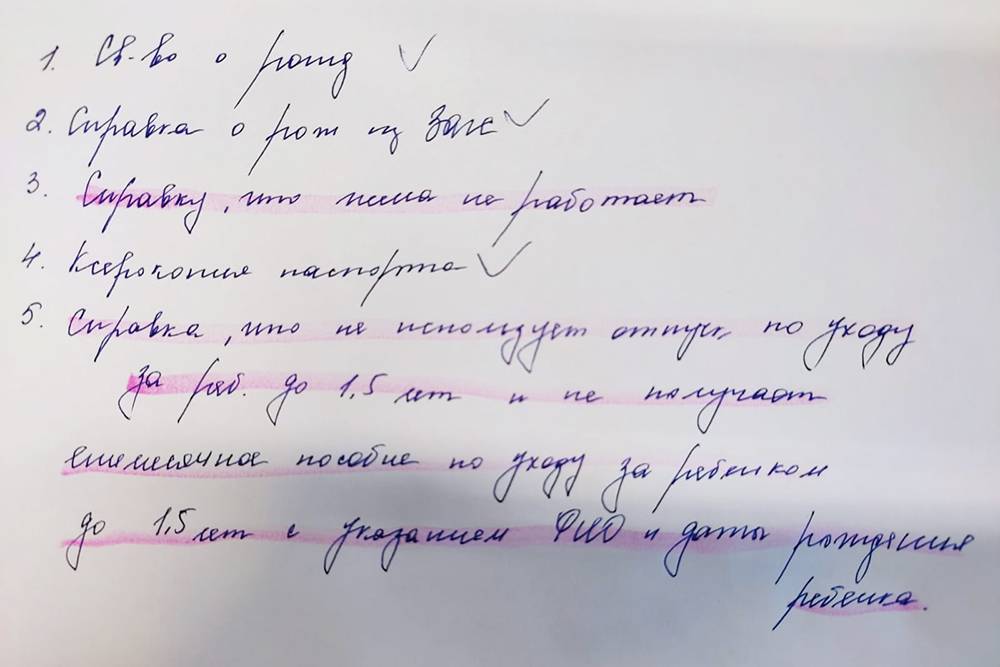 1. Св-во о рожд
2. Справка о рож из Загс
3. Справку, что жена не работает
4. Ксерокопия паспорта
5. Справка, что не использует отпуск по уходу
за реб. до 1,5 лет и не получает
ежемесячное пособие по уходу за ребенком
до 1,5 лет с указанием ФИО и даты рождения
ребенка.